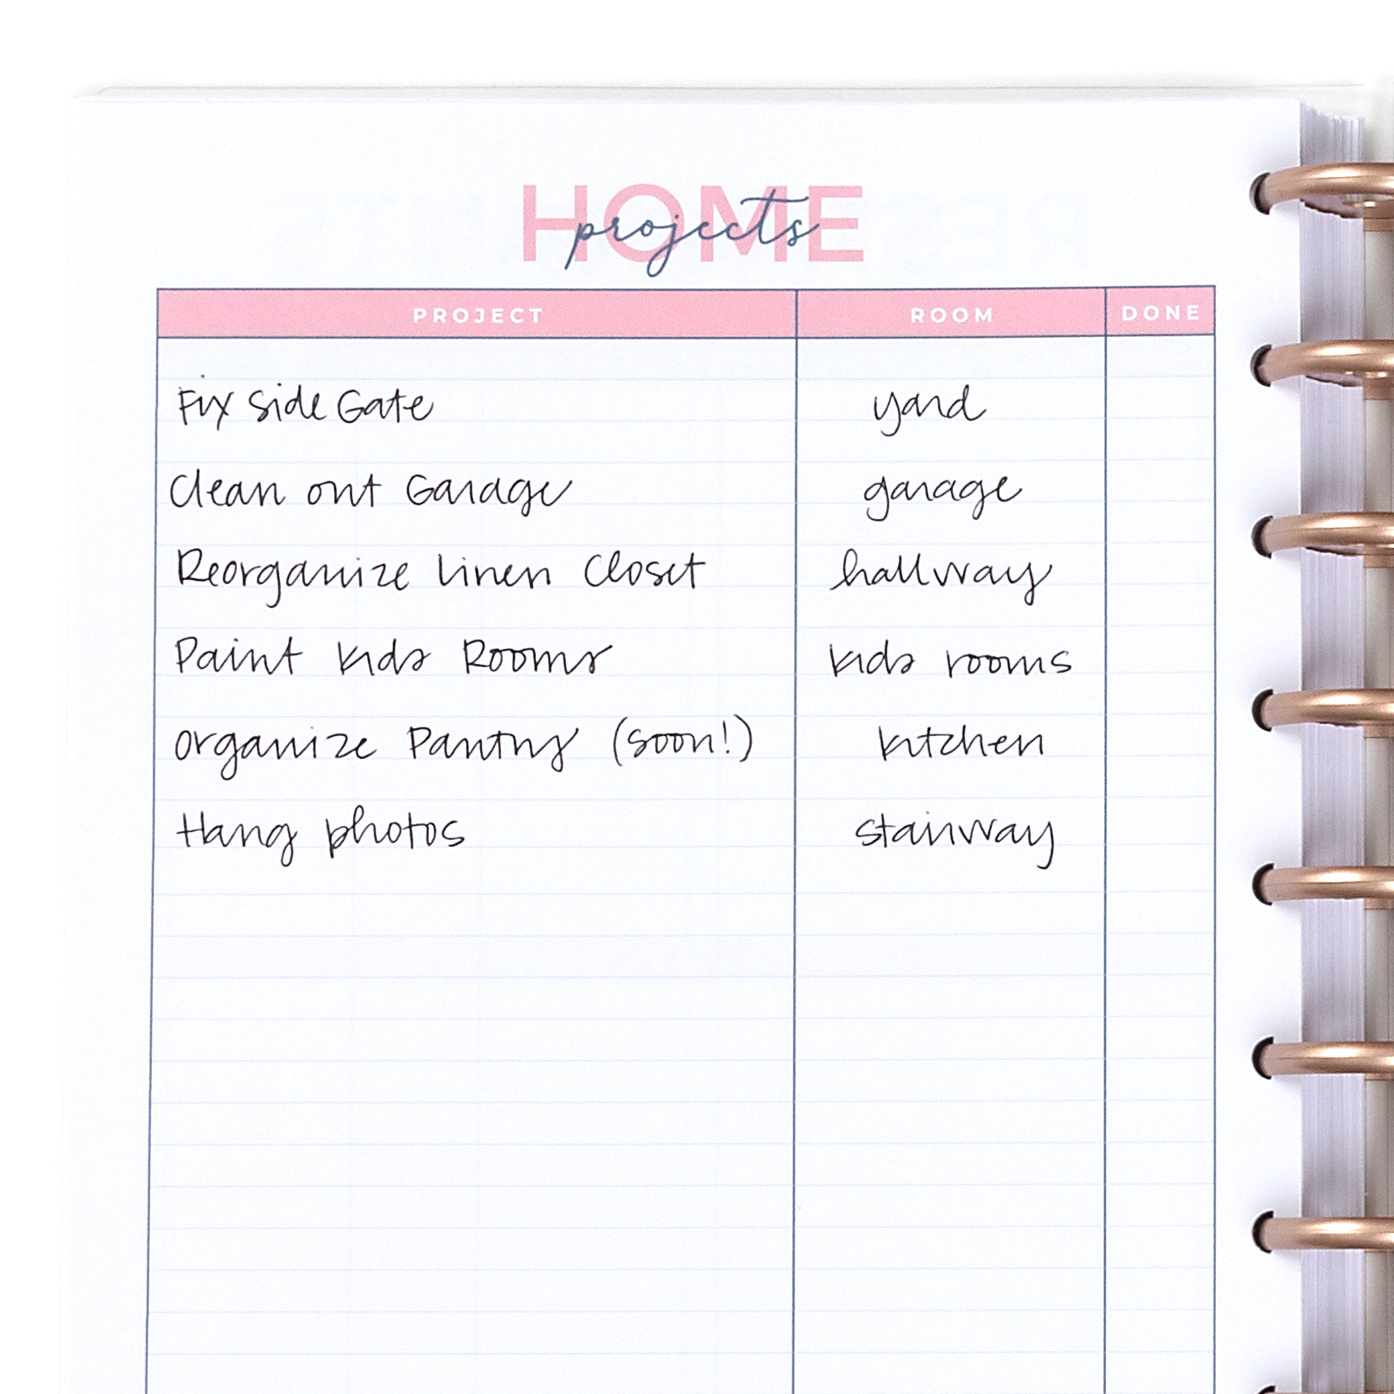 HOME
projects
PROJECT ROOM DONE
Fix Side Gate yard
Clean out Garage garage
Reorganize Linen Closet hallway
Paint kids Rooms kids rooms
organize Pantry (soon!) kitchen
Hang photos stairway